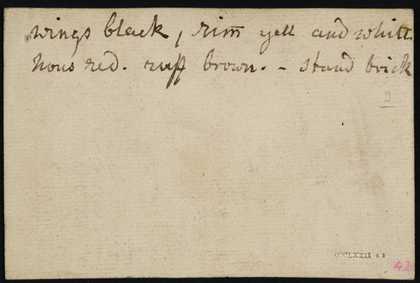 wings black, rim yell and whitt
hous red. ruff brown. - stand brick
42